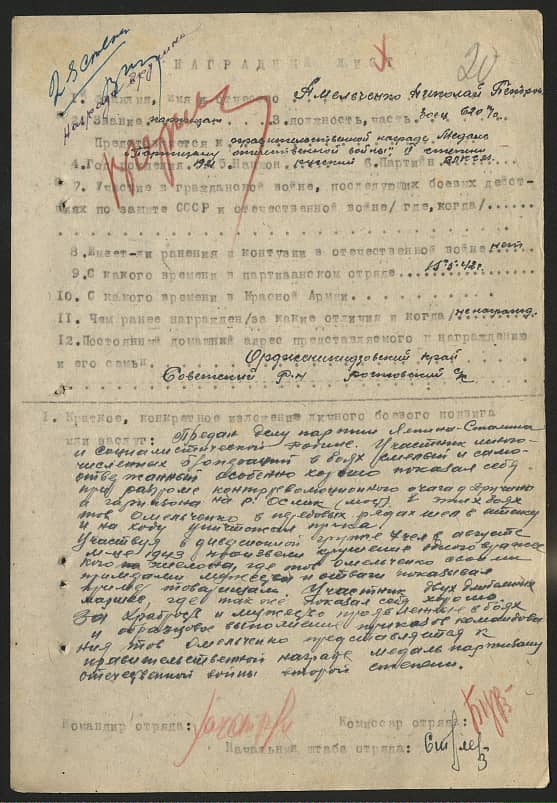 20
НАГРАДНОЙ ЛИСТ
1. Фамилия, имя и отчество Амельченко Николай Петров
2. Звание партизан 3. должность, часть боец
Представляется к правительственной награде Медаль
"Партизану отечественной войны" II степени
4. Год рождения 5. Национ. русский 6. Партийн.
7. Участие в гражданской войне, последующих боевых дейст-
виях по защите СССР и отечественной войне/ где, когда/
8. Имеет-ли ранения и контузии в отечественной войне нет
9. С какого времени в партизанском отряде
10. С какого времени в Красной Армии
11. Чем ранее награжден/за какие отличия и когда/ не награжд.
12. Постоянный домашний адрес представляемого к награждению
и его семьи Орджоникидзевский край
Советский р-н
1. Краткое, конкретное изложение личного боевого подвига
или заслуг: Предан делу партии Ленина-Сталина
и социалистической родине. Участник много-
численных операций в боях смелый и само-
отверженный особенно хорошо показал себя
при разгроме контрреволюционного очага
гарнизона на р. В этих боях
тов Омельченко в передовых рядах шел в атаку
и на ходу уничтожал врага.
Участвуя в диверсионной группе 4 чел в августе
м-це 1943 произвели крушение одного вражес-
кого эшелона, где тов Омельченко
мужества и отваги показывая
пример товарищам. Участник двух
маршей, где так же показал себя хорошо.
За храбрость и мужество проявленные в боях
и образцовое выполнение приказов командова-
ния тов Омельченко представляется к
правительственной награде медаль партизану
отечественной войны второй степени.
Командир отряда: Комиссар отряда:
Начальник штаба отряда: